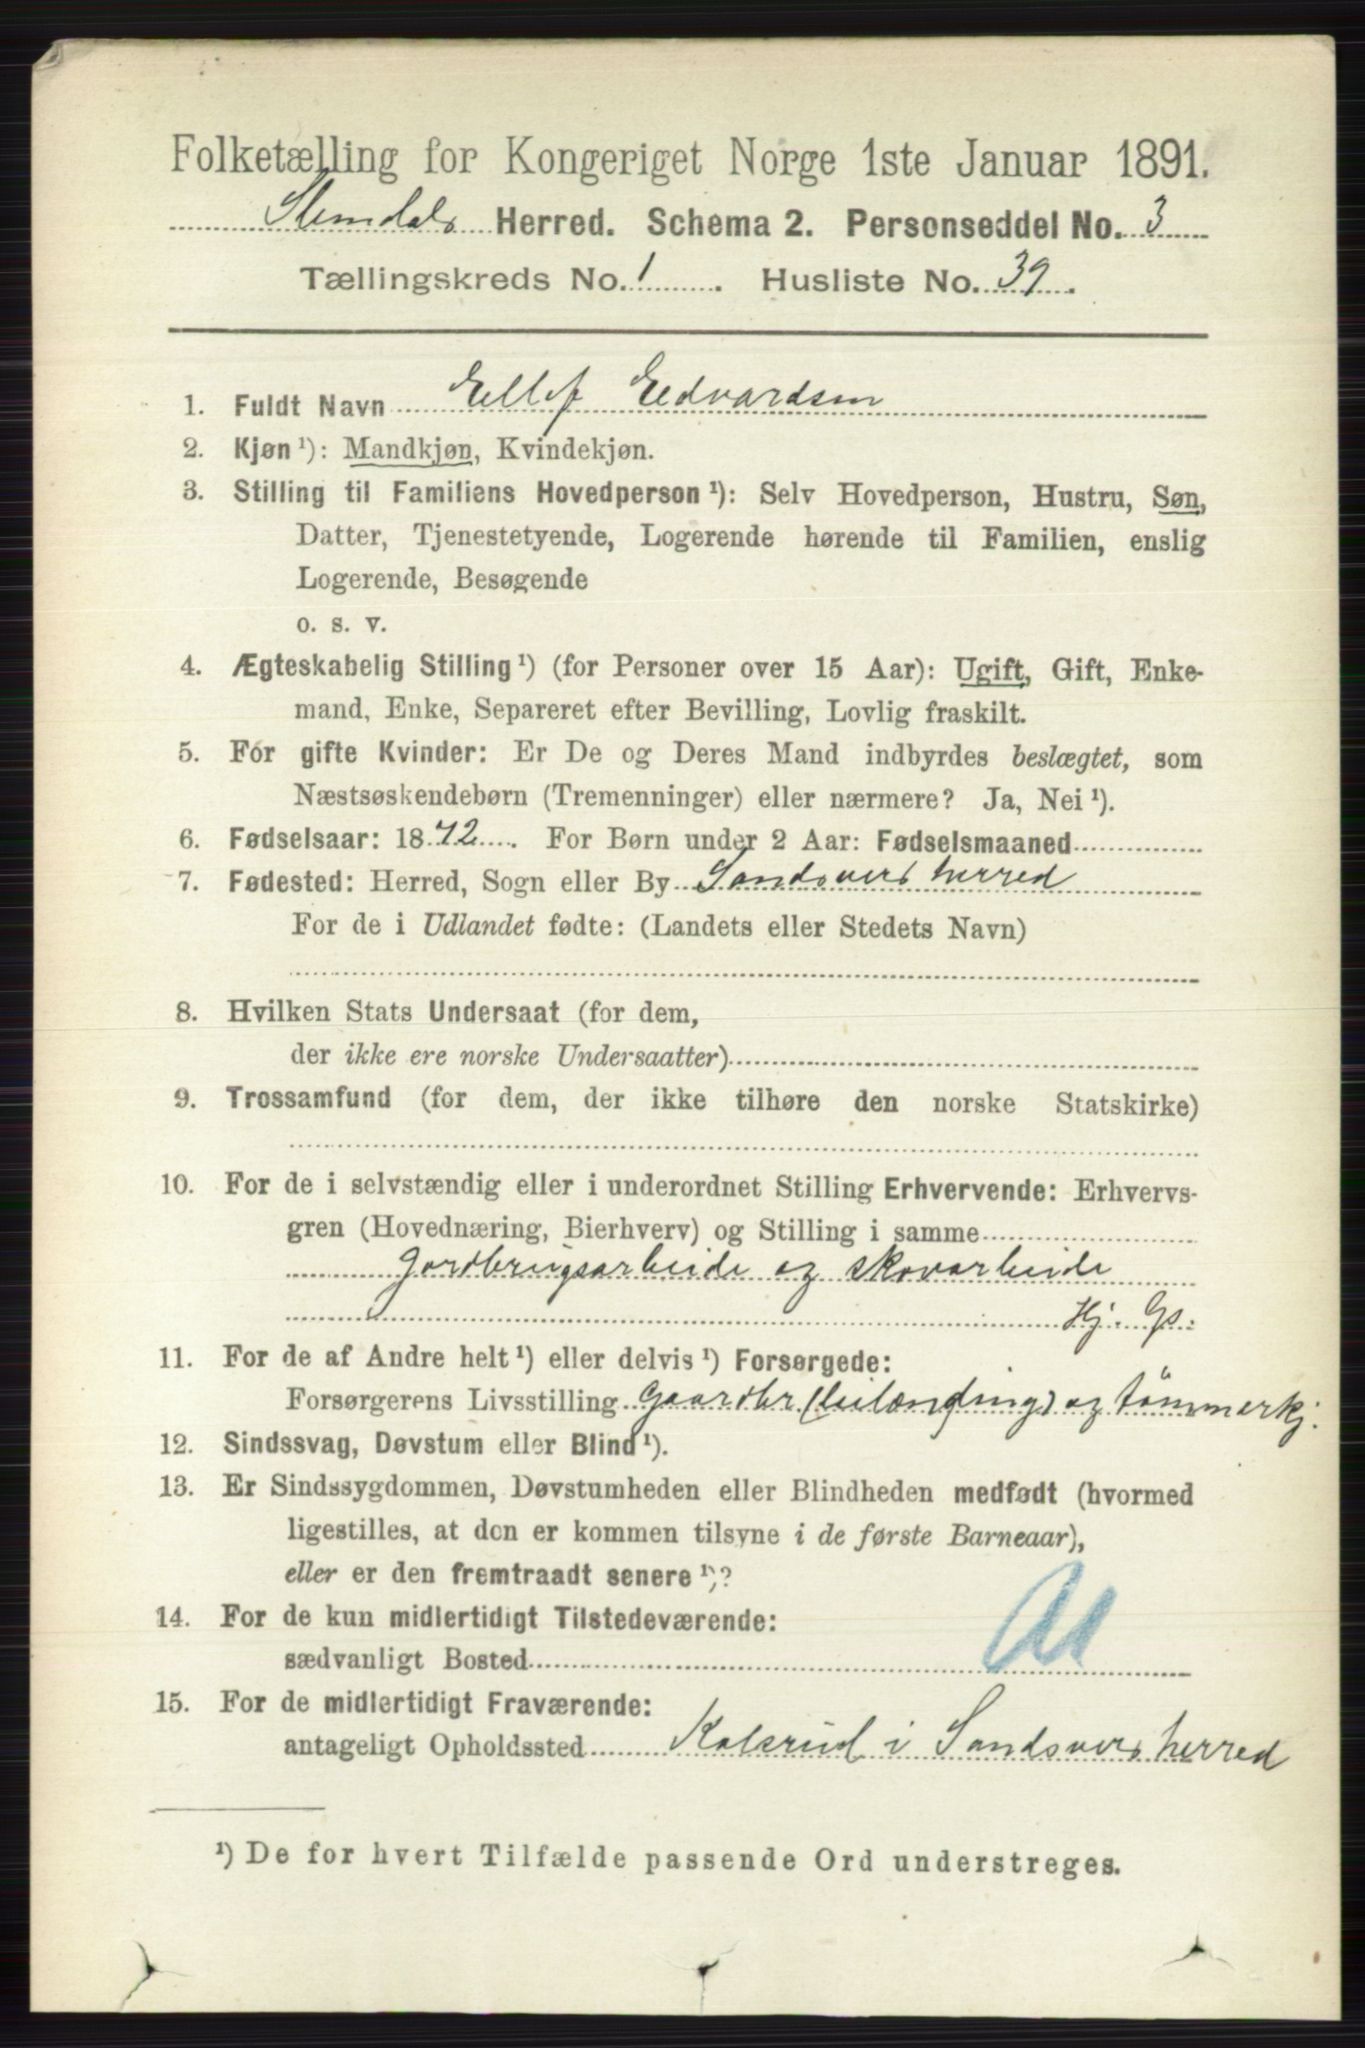 Folketælling for Kongeriget Norge 1ste Januar 1891.
Slemdals Herred. Schema 2. Personseddel No. 3
Tællingskreds No. 1. Husliste No. 39.
1. Fuldt Navn Ellef Edvardsen
2. Kjøn ¹): Mandkjøn, Kvindekjøn.
3. Stilling til Familiens Hovedperson ¹): Selv Hovedperson, Hustru, Søn,
Datter, Tjenestetyende, Logerende hørende til Familien, enslig
Logerende, Besøgende
o. s. v.
4. Ægteskabelig Stilling ¹) (for Personer over 15 Aar): Ugift, Gift, Enke-
mand, Enke, Separeret efter Bevilling, Lovlig fraskilt.
5. For gifte Kvinder: Er De og Deres Mand indbyrdes beslægtet, som
Næstsøskendebørn (Tremenninger) eller nærmere? Ja, Nei ¹).
6. Fødselsaar: 1872. For Børn under 2 Aar: Fødselsmaaned
7. Fødested: Herred, Sogn eller By Sandsvers herred
For de i Udlandet fødte: (Landets eller Stedets Navn)
8. Hvilken Stats Undersaat (for dem,
der ikke ere norske Undersaatter)
9. Trossamfund (for dem, der ikke tilhøre den norske Statskirke)
10. For de i selvstændig eller i underordnet Stilling Erhvervende: Erhvervs-
gren (Hovednæring, Bierhverv) og Stilling i samme
Gordbrugsarbeide og skovarbeide
Hj. Gs.
11. For de af Andre helt ¹) eller delvis ¹) Forsørgede:
Forsørgerens Livsstilling Gaardbr (leilænding) og tømmerkj.
12. Sindssvag, Døvstum eller Blind ¹).
13. Er Sindssygdommen, Døvstumheden eller Blindheden medfødt (hvormed
ligestilles, at den er kommen tilsyne i de første Barneaar),
eller er den fremtraadt senere ¹)?
14. For de kun midlertidigt Tilstedeværende:
sædvanligt Bosted
15. For de midlertidigt Fraværende:
antageligt Opholdssted Kolsrud i Sandsvers herred
¹) De for hvert Tilfælde passende Ord understreges.